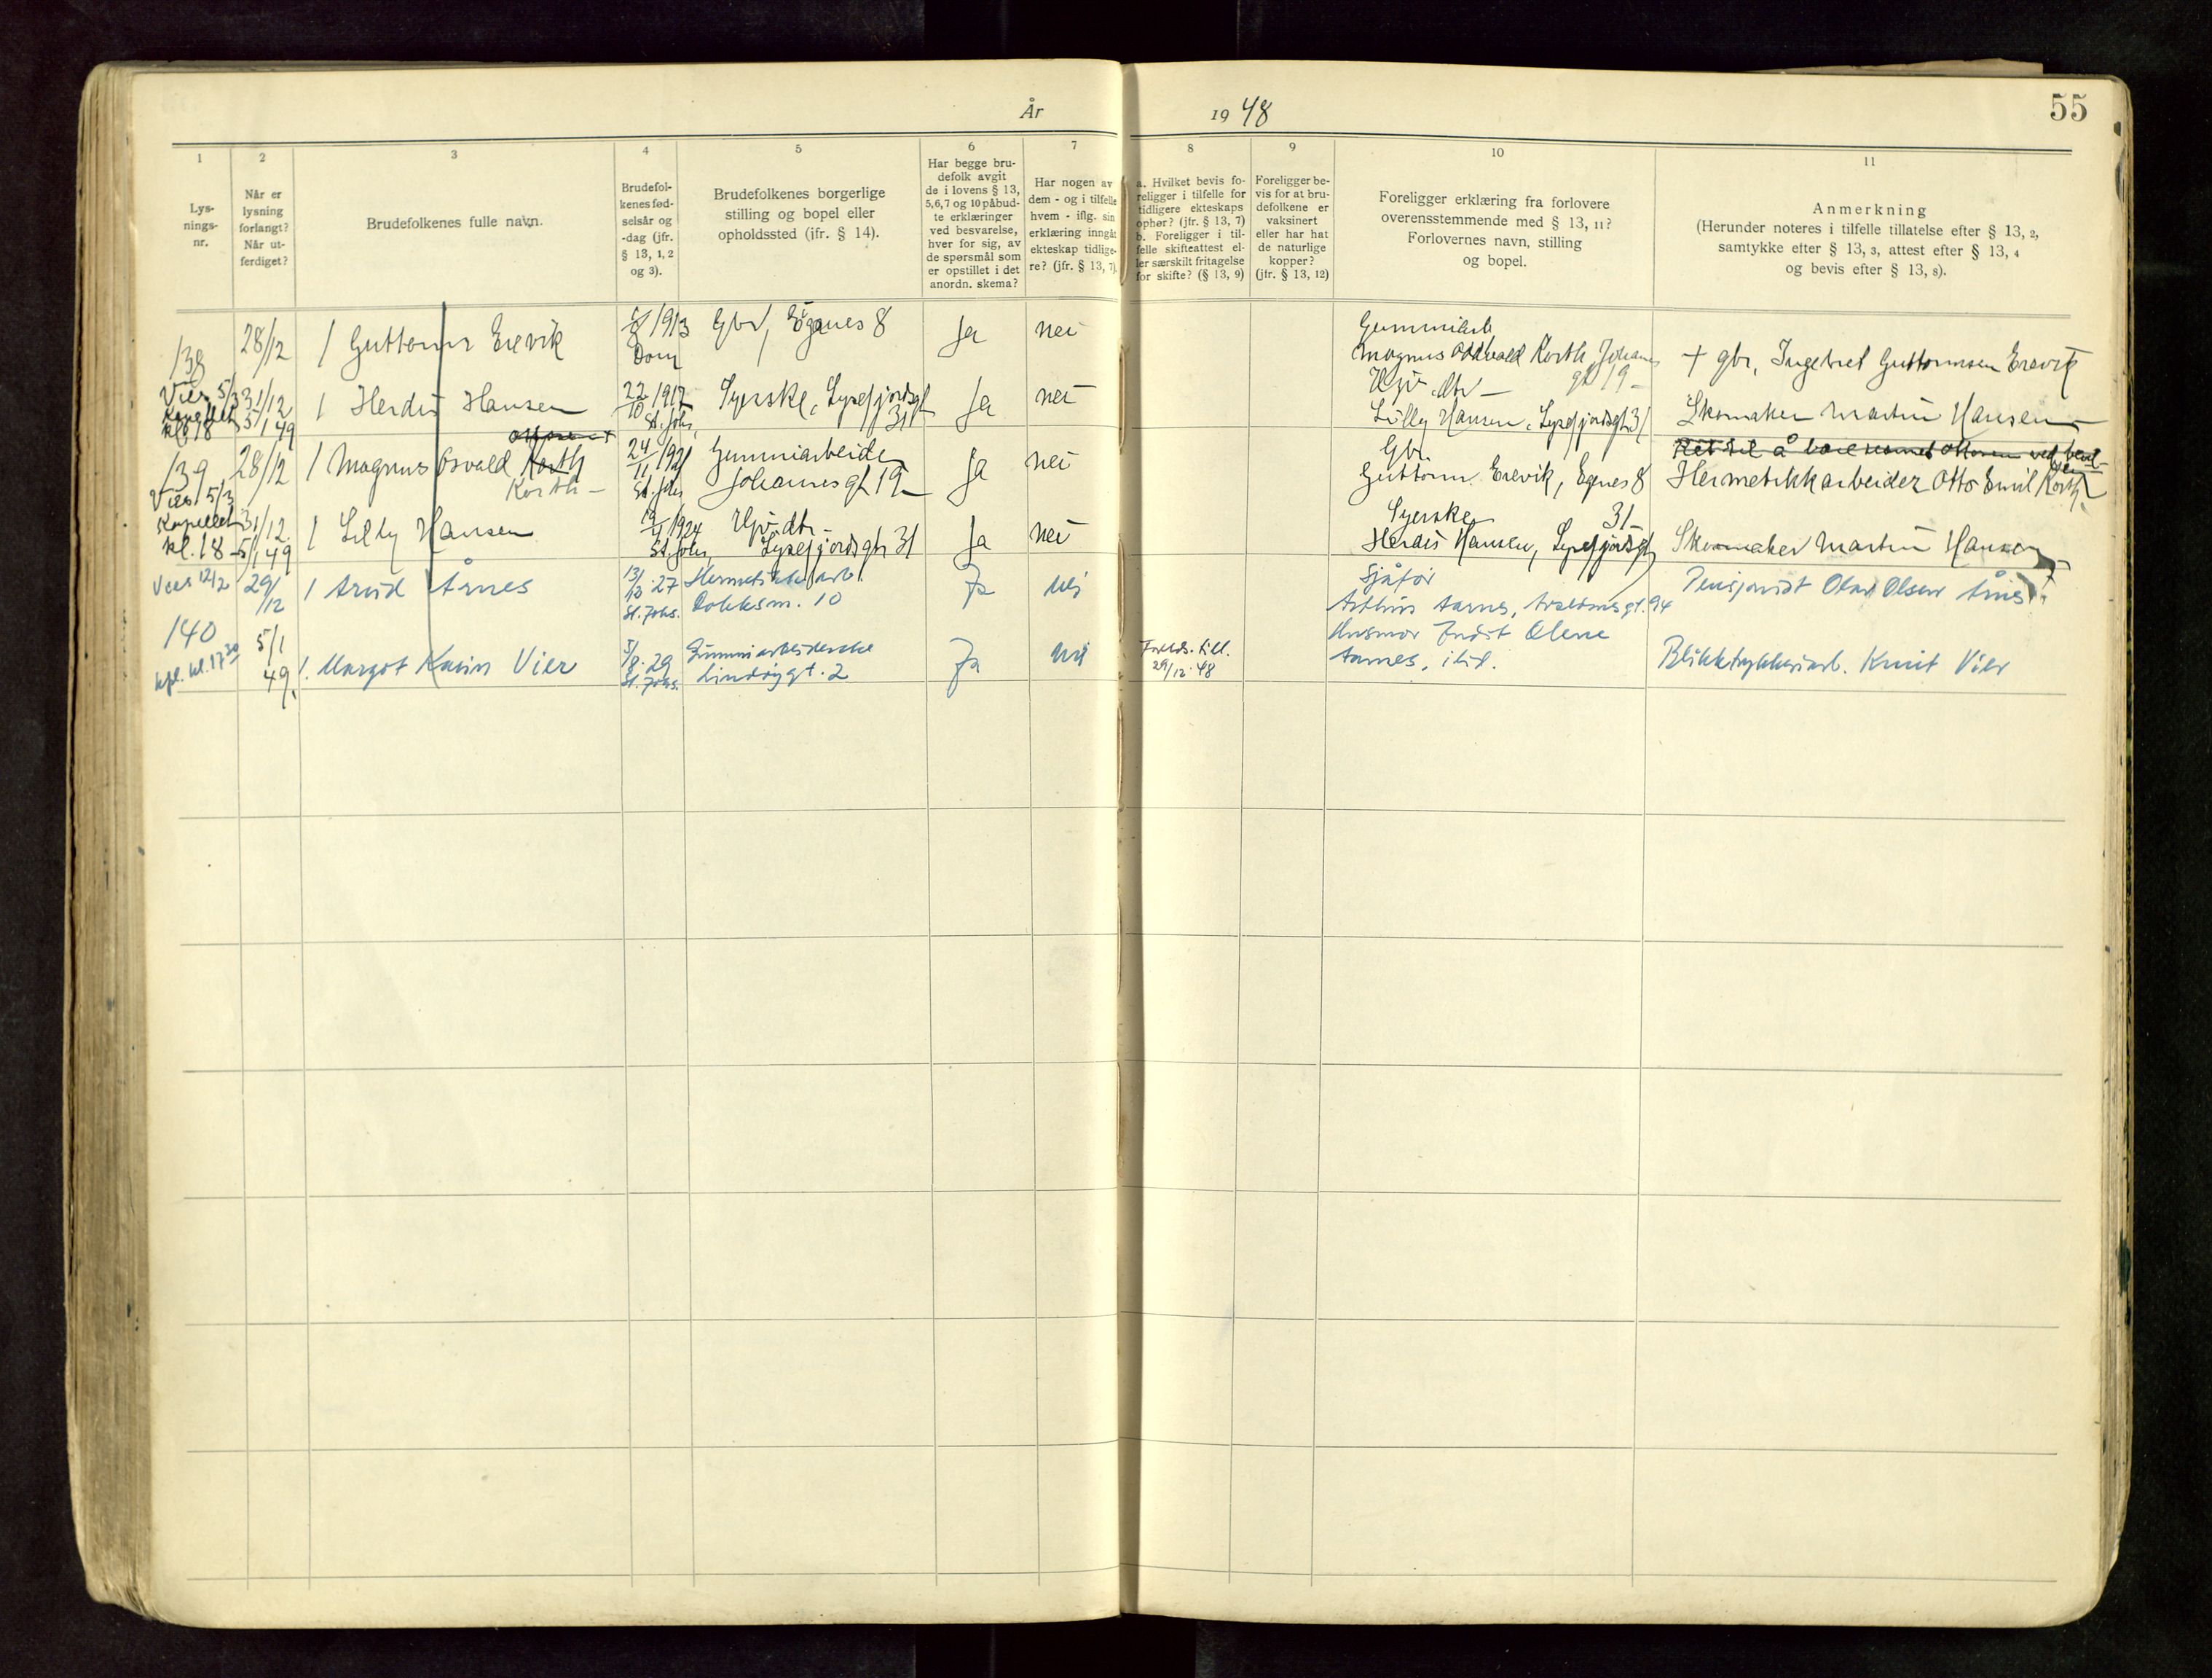 År 1948
55
1
Lys-
nings-
nr.
2
Når er
lysning
forlangt?
Når ut-
ferdiget?
3
Brudefolkenes fulle navn.
4
Brudefol-
kenes fød-
selsår og
-dag (jfr.
§ 13, 1, 2
og 3).
5
Brudefolkenes borgerlige
stilling og bopel eller
opholdssted (jfr. § 14).
6
Har begge bru-
defolk avgit
de i lovens § 13,
5,6,7 og 10 påbud-
te erklæringer
ved besvarelse,
hver for sig, av
de spørsmål som
er opstillet i det
anordn. skema?
7
Har nogen av
dem - og i tilfelle
hvem - iflg. sin
erklæring inngåt
ekteskap tidlige-
re? (jfr. § 13, 7).
8
a. Hvilket bevis fo-
religger i tilfelle for
tidligere ekteskaps
ophør? (jfr. § 13, 7)
b. Foreligger i til-
felle skifteattest el-
ler særskilt fritagelse
for skifte? (§ 13, 9)
9
Foreligger be-
vis for at bru-
defolkene er
vaksinert
eller har hat
de naturlige
kopper?
(jfr. § 13, 12)
10
Foreligger erklæring fra forlovere
overensstemmende med § 13, 11?
Forlovernes navn, stilling
og bopel.
11
Anmerkning
(Herunder noteres i tilfelle tillatelse efter § 13, 2,
samtykke efter § 13, 3, attest efter § 13, 4
og bevis efter § 13, 8).
138
Viet 5/3
Kapellet
kl. 18
28/12
31/12
5/1 49
1 Guttorm Erevik
1913
Dom
Gbr, Egnes 8
Ja
nei
Gummiarb
Magnus Oddvald Korth, Johannes
gt 19 -
+ gbr, Ingebret Guttormsen Erevik
1 Herdis Hansen
22/10 1917
St. Johs,
Syerske, Lysefjordsgt
31
Ja
nei
Hjv. dtr -
Lilly Hansen, Lysefjordsgt 31
Skomaker Martin Hansen
139
Viet 5/3
Kapellet
kl. 18
28/12
31/12
5/1 49
Ottosen
1 Magnus Osvald Korth
Korth -
24/11 1921
St. Johs
Gummiarbeider
Johannesgt 19 -
Ja
nei
Gbr.
Guttorm Erevik, Egnes 8
Ret til å bære navnet Ottosen ved bevil-
Hermetikkarbeider Otto Emil Korth
1 Lilly Hansen
1924
St. Johs,
Hjv. dtr -
Lysefjordsgt 31
Ja
nei
Syerske 31 -
Herdis Hansen, Lysefjordsgt
Skomaker Martin Hansen
Viet 12/2
140
kpl. kl. 17 30
29/12
5/1
49
1 Arvid Årnes
27
St. Johs.
Hermetikkarb.
Dokksm. 10
Ja
Nei
Sjåfør
Arthur Aarnes, gt. 94
Pensjonist Olav Olsen Årnes
1. Margot Karin Vier
5/8. 29
St. Johs.
Gummiarbeiderske
Lindøygt. 2
Ja
Nei
Forelds. till.
29/12. 48
Husmor Olene
Aarnes, ibid.
Blikktrykkeriarb. Knut Vier